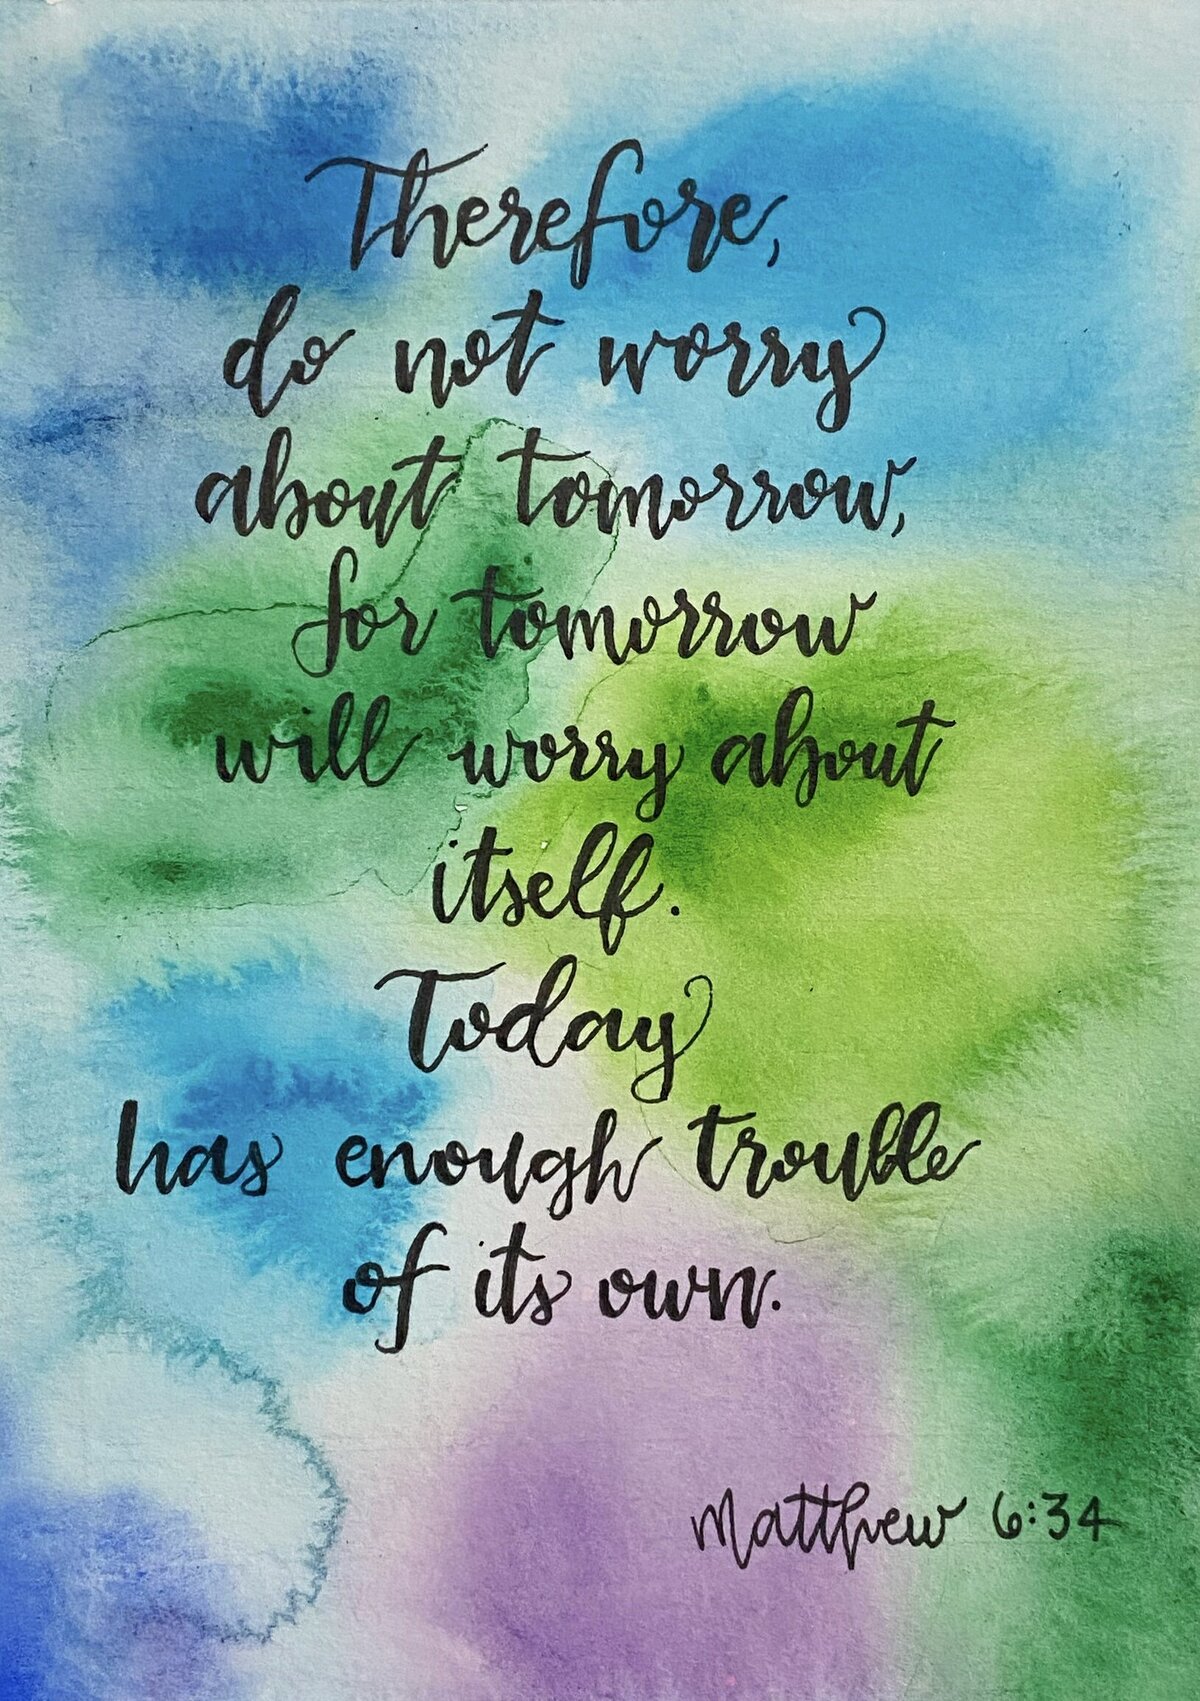 Therefore,
do not worry
about tomorrow,
for tomorrow
will worry about
itself.
Today
has enough trouble
of its own.
Matthew 6:34